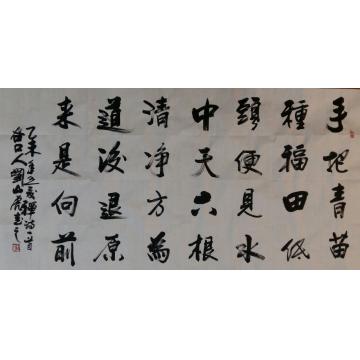 手把青苗
種福田低
頭便見水
中天六根
清净方為
道後退原
来是向前
乙未年之夏禪詩一首
谷口人劉山虎书